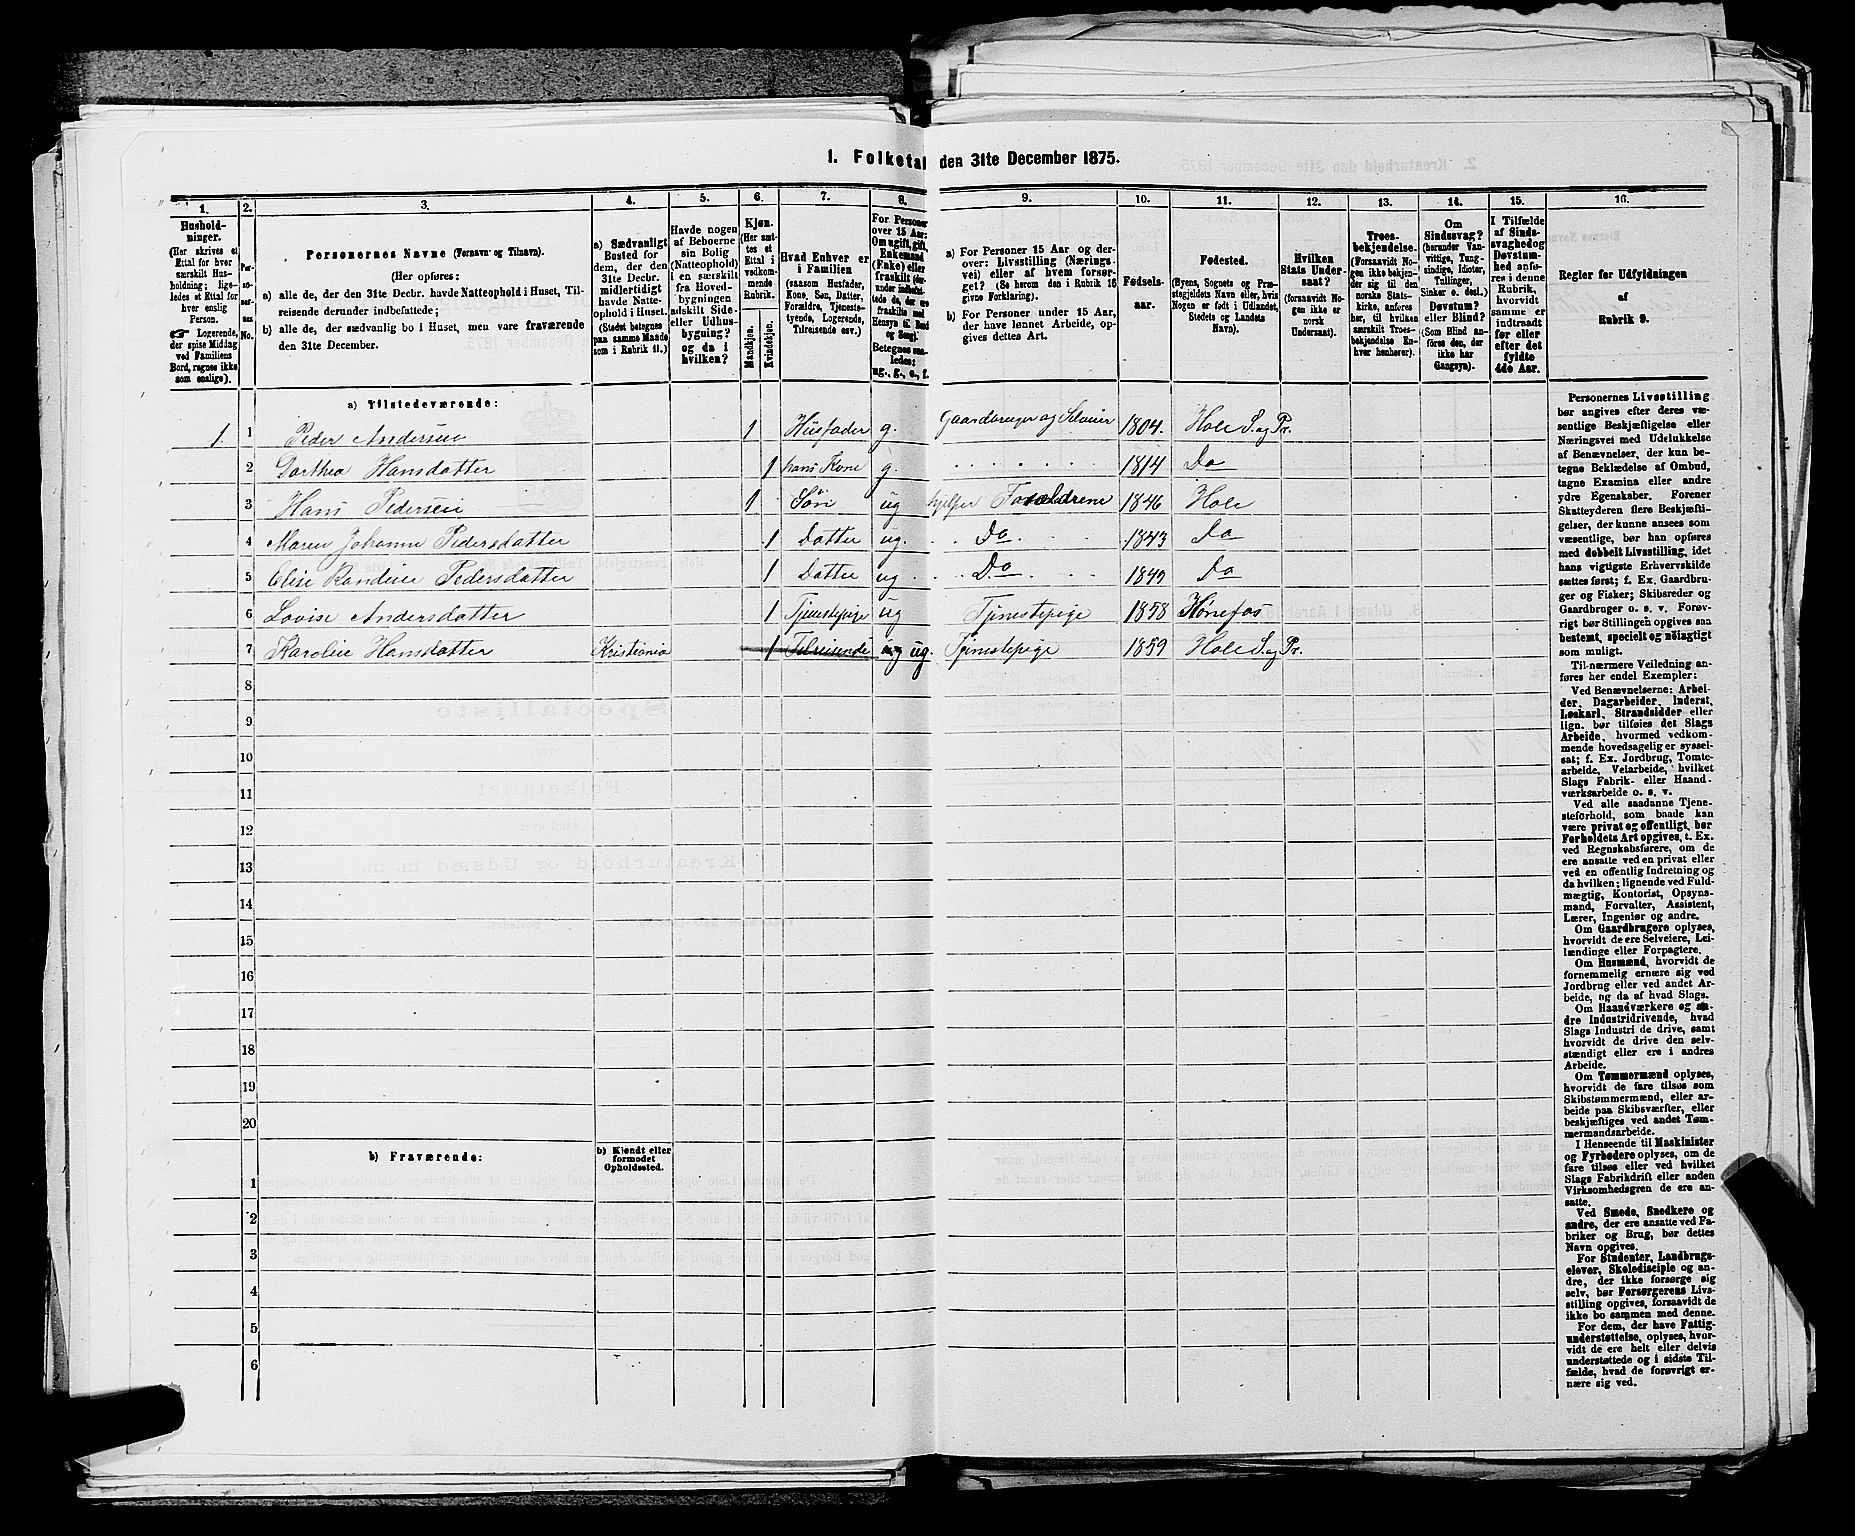 1. Folketal den 31te December 1875.
1. 2. 3. 4. 5. 6. 7. 8. 9. 10. 11. 12. 13. 14. 15. 16.
Hushold-
ninger.
(Her skrives et
Ettal for hver
særskilt Hus-
holdning; lige-
ledes et Ettal for
hver enslig
Person.
☞ Logerende,
der spise Middag
ved Familiens
Bord, regnes ikke
som enslige).
Per-
so-
ner-
nes
No.
Personernes Navne (Fornavn og Tilnavn).
(Her opføres:
a) alle de, der den 31te Decbr. havde Natteophold i Huset, Til-
reisende derunder indbefattede;
b) alle de, der sædvanlig bo i Huset, men vare fraværende
den 31te December.
a) Sædvanligt
Bosted for
dem, der den
31te Decbr.
midlertidigt
havde Natte-
ophold i Huset.
(Stedet betegnes
paa samme Maade
som i Rubrik 11.)
Havde nogen
af Beboerne
sin Bolig
(Natteophold)
i en særskilt
fra Hoved-
bygningen
adskilt Side-
eller Udhus-
bygning?
og da i
hvilken?
Kjøn.
(Her sæt-
tes et
Ettal i
vedkom-
mende
Rubrik.
Mandkjøn.
Kvindekjøn.
Hvad Enhver er
i Familien
(saasom Husfader,
Kone, Søn, Datter,
Forældre, Tjeneste-
tyende, Logerende,
Tilreisende osv.)
For Personer
over 15 Aar:
Om ugift, gift,
Enkemand
(Enke) eller
fraskilt
Betegnes saa-
ledes:
ug., g., e., f.
a) For Personer 15 Aar og der-
over: Livsstilling (Nærings-
vei) eller af hvem forsør-
get? (Se herom den i Rubrik 16
givne Forklaring).
b) For Personer under 15 Aar,
der have lønnet Arbeide, op-
gives dettes Art.
Fødsels-
aar.
Fødested.
(Byens, Sognets og Præ-
stegjeldets Navn eller, hvis
Nogen er født i Udlandet,
Stedets og Landets
Navn).
Hvilken
Stats Under-
saat?
(foraavidt No-
gen ikke er
norsk
Undersaat).
Troes-
bekjendelse-
(Forsaavidt No-
gen ikke bekjen-
der sig til den
norske Stats-
kirke, anføres
her, til hvilken
særskilt Troes-
bekjendelse En-
hver henhører).
Om
Sindssvag?
(herunder Van-
vittige, Tung-
sindige, Idioter,
Tullinger,
Sinker o. desl.)
Døvstum?
eller Blind?
(Som Blind an-
føres den, der
ikke har
Gangsyn).
I Tilfælde
af Sinds-
svaghed og
Døvstum-
hed anfø-
res i denne
Rubrik,
hvorvidt
samme er
indtraadt
før eller
efter det
fyldte
4de Aar.
Regler for Udfyldningen
af
Rubrik 9.
a) Tilstedeværende:
1. 1 Peder Andersen 1 Husfader g. Gaardbruger og Selveier 1804. Hole S. og Pr.
2 Dorthea Hansdatter 1 hans Kone g. 1814 Do
3 Hans Pedersen 1 Søn ug hjelper Forældrene 1846 Hole
4 Maren Johanne Pedersdatter 1 Datter ug. Do 1843 Do
5 Elise Randine Pedersdatter 1 Datter ug Do 1849 Do
6 Lovise Andersdatter 1 Tjenestepige ug Tjenestepige 1858 Hønefos
7 Karoline Hansdatter Kristiania 1 Tilreisende ug ug. Tjenestepige 1859 Hole S. og Pr.
8
9
10
11
12
13
14
15
16
17
18
19
20
b) Fraværende:
b) Kjendt eller
formodet
Opholdssted.
1
2
3
4
5
6
Personernes Livsstilling
bør angives efter deres væ-
sentlige Beskjæftigelse eller
Næringsvei med Udelukkelse
af Benævnelser, der kun be-
tegne Beklædelse af Ombud,
tagne Examina eller andre
ydre Egenskaber. Forener
Skatteyderen flere Beskjæfti-
gelser, der kunne ansees som
væsentlige, bør han opføres
med dobbelt Livsstilling, idet
hans vigtigste Erhvervskilde
sættes først; f. Ex. Gaardbru-
ger og Fisker; Skibsreder og
Gaardbruger o. s. v. Forøv-
rigt bør Stillingen opgives saa
bestemt, specielt og nøiagtigt
som muligt.
Til nærmere Veiledning an-
føres her endel Exempler:
Ved Benævnelserne: Arbei-
der, Dagarbeider, Inderst,
Løskarl, Strandsidder eller
lign. bør tilføies det Slags
Arbeide, hvormed vedkom-
mende hovedsagelig er syssel-
sat; f. Ex. Jordbrug, Tomte-
arbeide, Veiarbeide, hvilket
Slags Fabrik- eller Haand-
værksarbeide o. s. v.
Ved alle saadanne Tjene-
steforhold, som baade kan
være privat og offentligt, bør
Forholdets Art opgives, t. Ex.
ved Regnskabsførere, om de
ere ansatte ved en privat eller
ved en offentlig Indretning og
da hvilken; lignende ved Fuld-
mægtig, Kontorist, Opsyns-
mand, Forvalter, Assistent,
Lærer, Ingeniør og andre.
Om Gaardbrugere oplyses,
hvorvidt de ere Selveiere, Lei-
lændinge eller Forpagtere.
Om Husmænd, hvorvidt de
fornemmelig ernære sig ved
Jordbrug eller ved andet Ar-
beide, og da af hvad Slags.
Om Haandværkere og an-
dre Industridrivende, hvad
Slags Industri de drive, samt
hvorvidt de drive den selv-
stændigt eller ere i andres
Arbeide.
Om Tømmermænd oplyses,
hvorvidt de fare tilsøs som
Skibstømmermænd, eller ar-
beide paa Skibsværfter, eller
beskjæftiges ved andet Tøm-
mermandsarbeide.
I Henseende til Maskinister
og Fyrbødere oplyses, om de
fare tilsøs eller ved hvilket
Slags Fabrikdrift eller anden
Virksomhedsgren de ere an-
satte.
Ved Smede, Snedkere og
andre, der ere ansatte ved Fa-
briker og Brug, bør dettes
Navn opgives.
For Studenter, Landbrugs-
elever, Skoledisciple og an-
dre, der ikke forsørge sig
selv, bør Forsørgerens Livs-
stilling opgives, forsaavidt de
ikke bo sammen med denne.
For dem, der have Fattig-
understøttelse, oplyses, hvor-
vidt de ere helt eller delvis
understøttede og i sidste Til-
fælde, hvad de forøvrigt er-
nære sig ved.